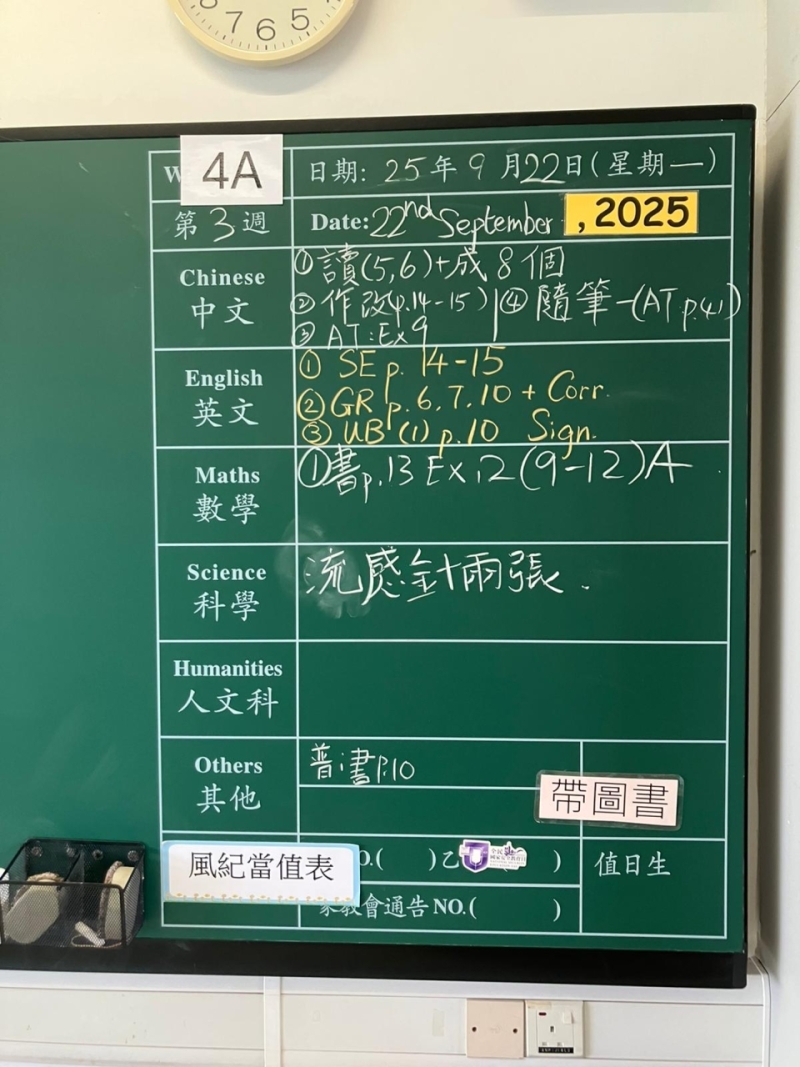 7 6 5
4A
日期: 25年9月22日(星期一)
第3週
Date: 22nd September , 2025
Chinese
中文
① 讀(5,6)+成8個
② 作改(p.14-15) ④ 隨筆一(AT p.41)
③ AT:Ex9
English
英文
① SE p. 14-15
② GR p. 6, 7, 10 + Corr.
③ UB (1) p.10 Sign.
Maths
數學
① 書p.13 Ex.12(9-12)A
Science
科學
流感針兩張.
Humanities
人文科
Others
其他
普:書p.10
帶圖書
風紀當值表
O.( )乙 )
值日生
家教會通告 NO.( )